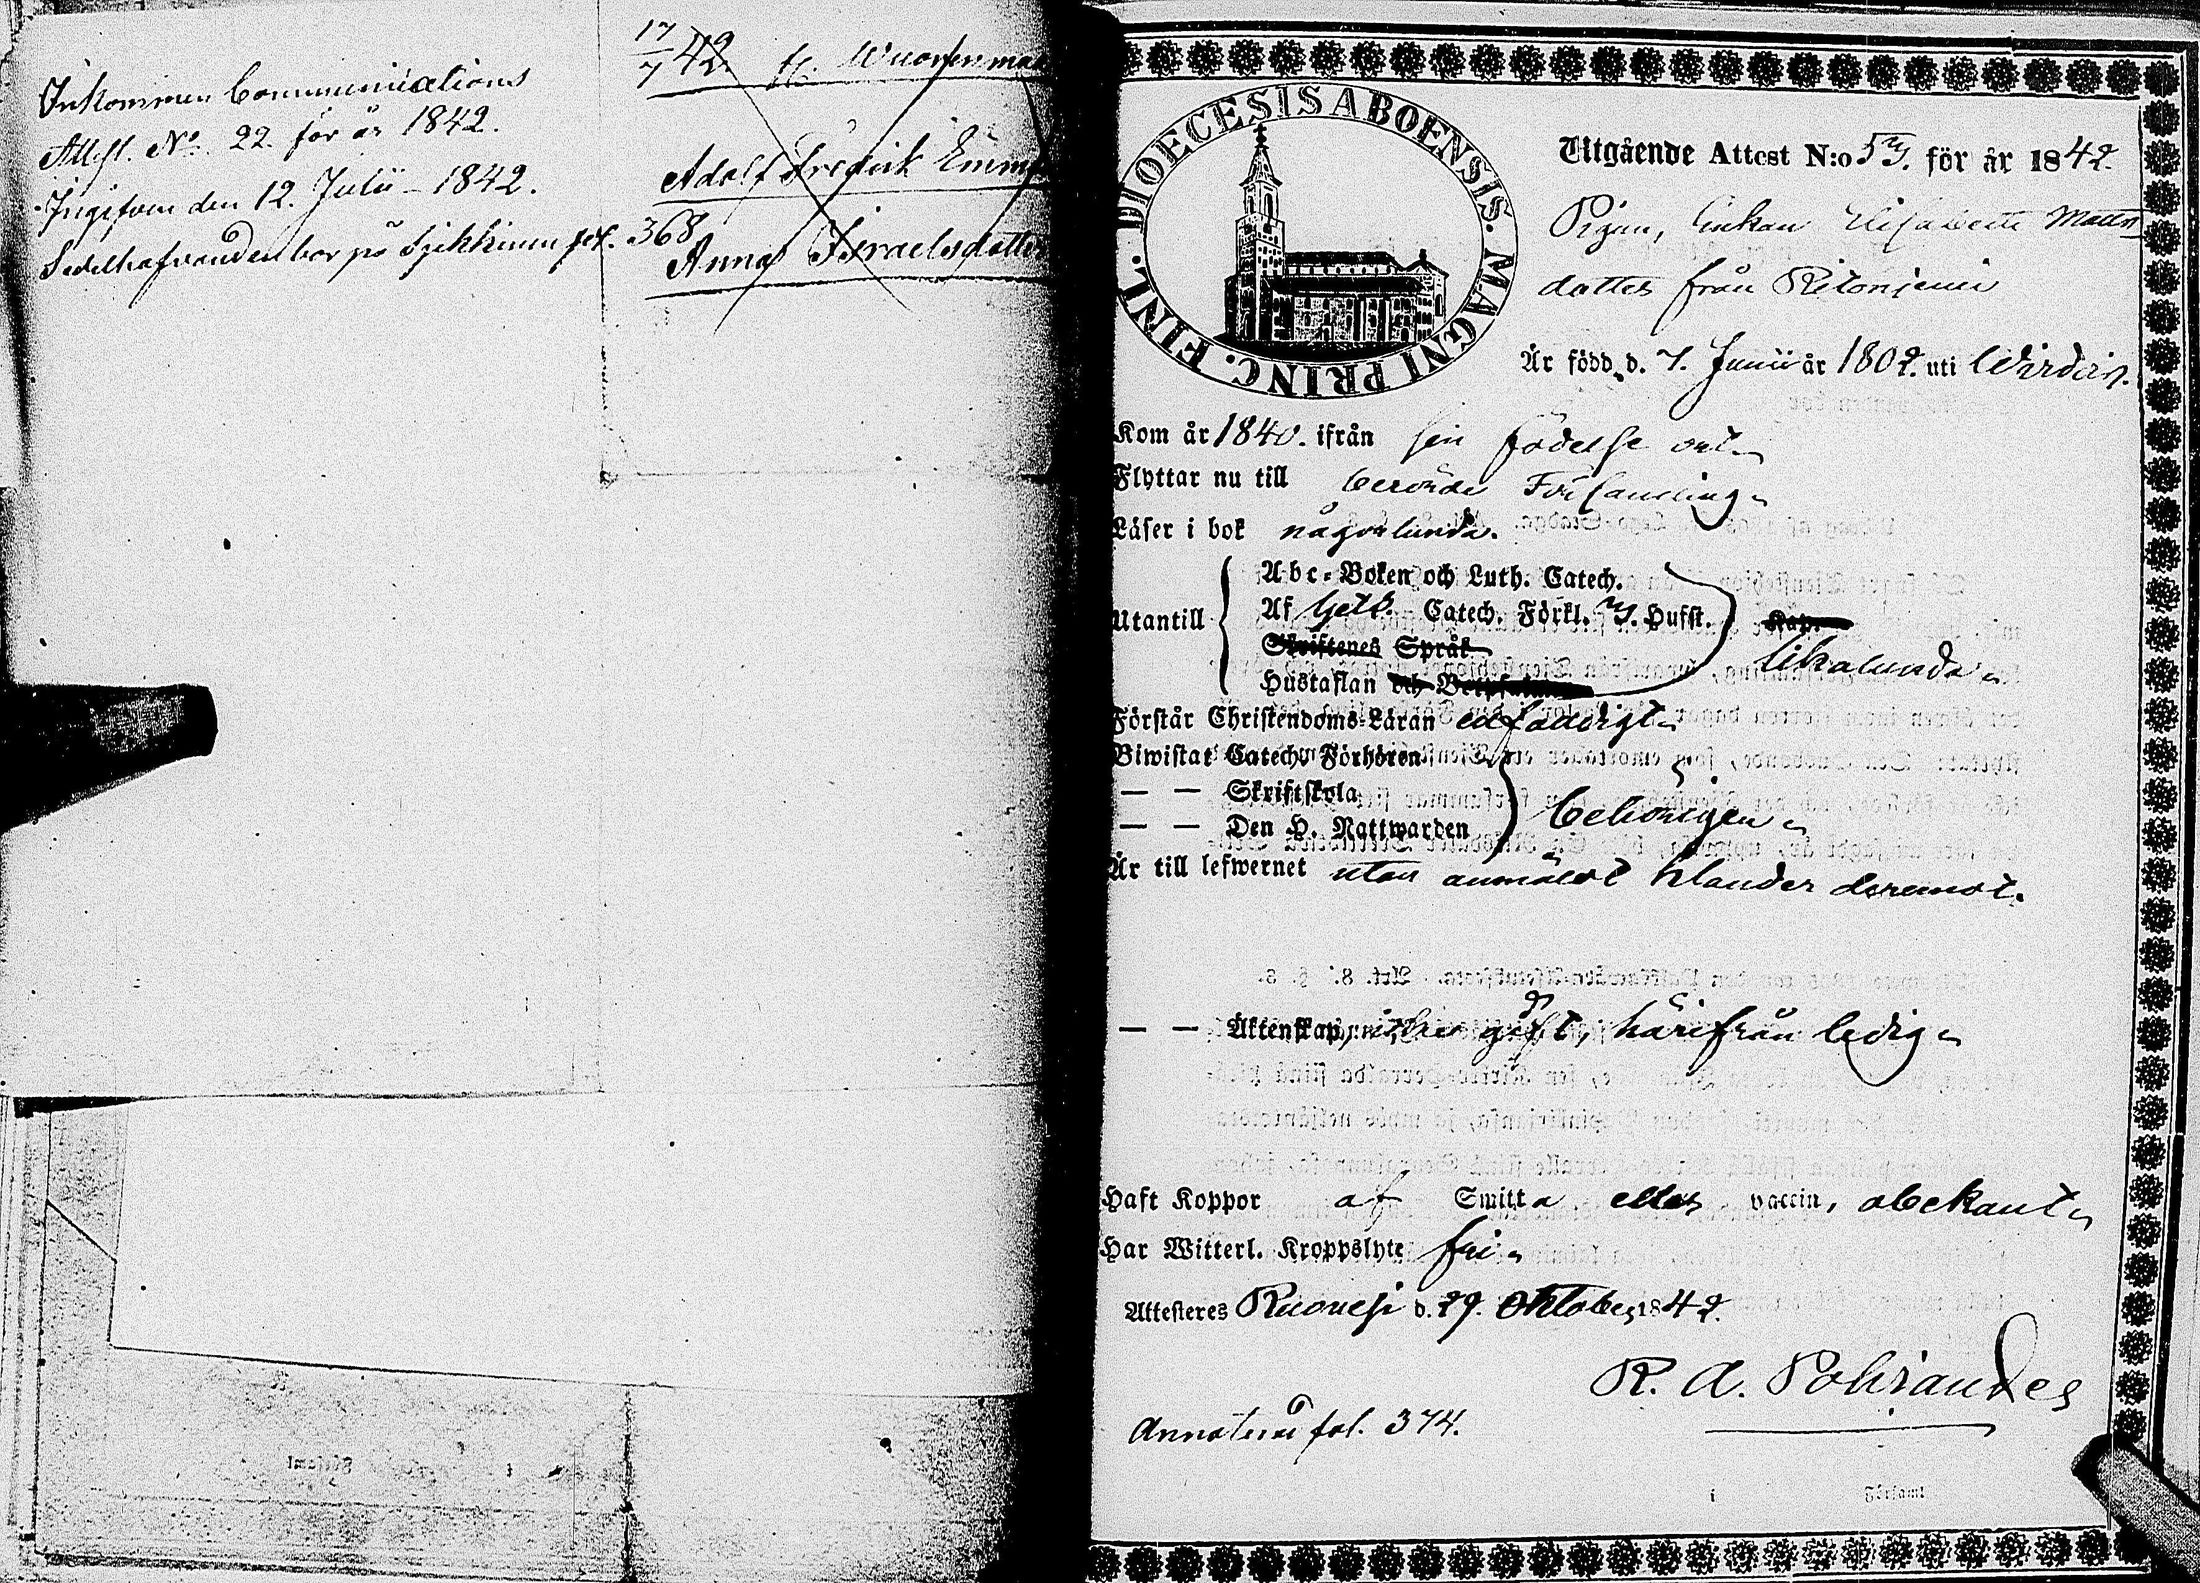 Inkommen Communications
Attest. No. 22 för år 1842.
Ingifven den 12. Julii 1842.
Sedelhafvanden bor på pag. 368
17/7 42.
Adolf Fredrik
Anna Israelsdotter
DIOECESIS ABOENSIS. MAGNI PRINC. FINL.
Utgående Attest N:o 53. för år 1842.
Pigan, Enkan Elisabeth Matts
dotter från Ritoniemi
Är född d. 7. Junii år 1802. uti Wirdois.
Kom år 1840. ifrån sin födelse ort
Flyttar nu till berörde Församling
Läser i bok någorlunda.
Abc-Boken och Luth. Catech.
Utantill Af Catech. Förkl. 3. Hufst. Kap.
Skriftenes Språk
likalunda
Hustaflan och
Förstår Christendoms-Läran enfaldigt
Biwistat Catech. Förhören
— — Skriftskola
behörigen
— — Den H. Nattwarden
Är till lefwernet utan anmäldt klander deremot.
— — Äktenskap, gift, härifrån ledig
Haft Koppor af Smitta eller vaccin, obekant
Har Witterl. Kroppslyte fri
Attesteres Ruovesi d. 29. Oktober 1842.
R. A. Polviander
Annoterad fol. 374.
i Församl